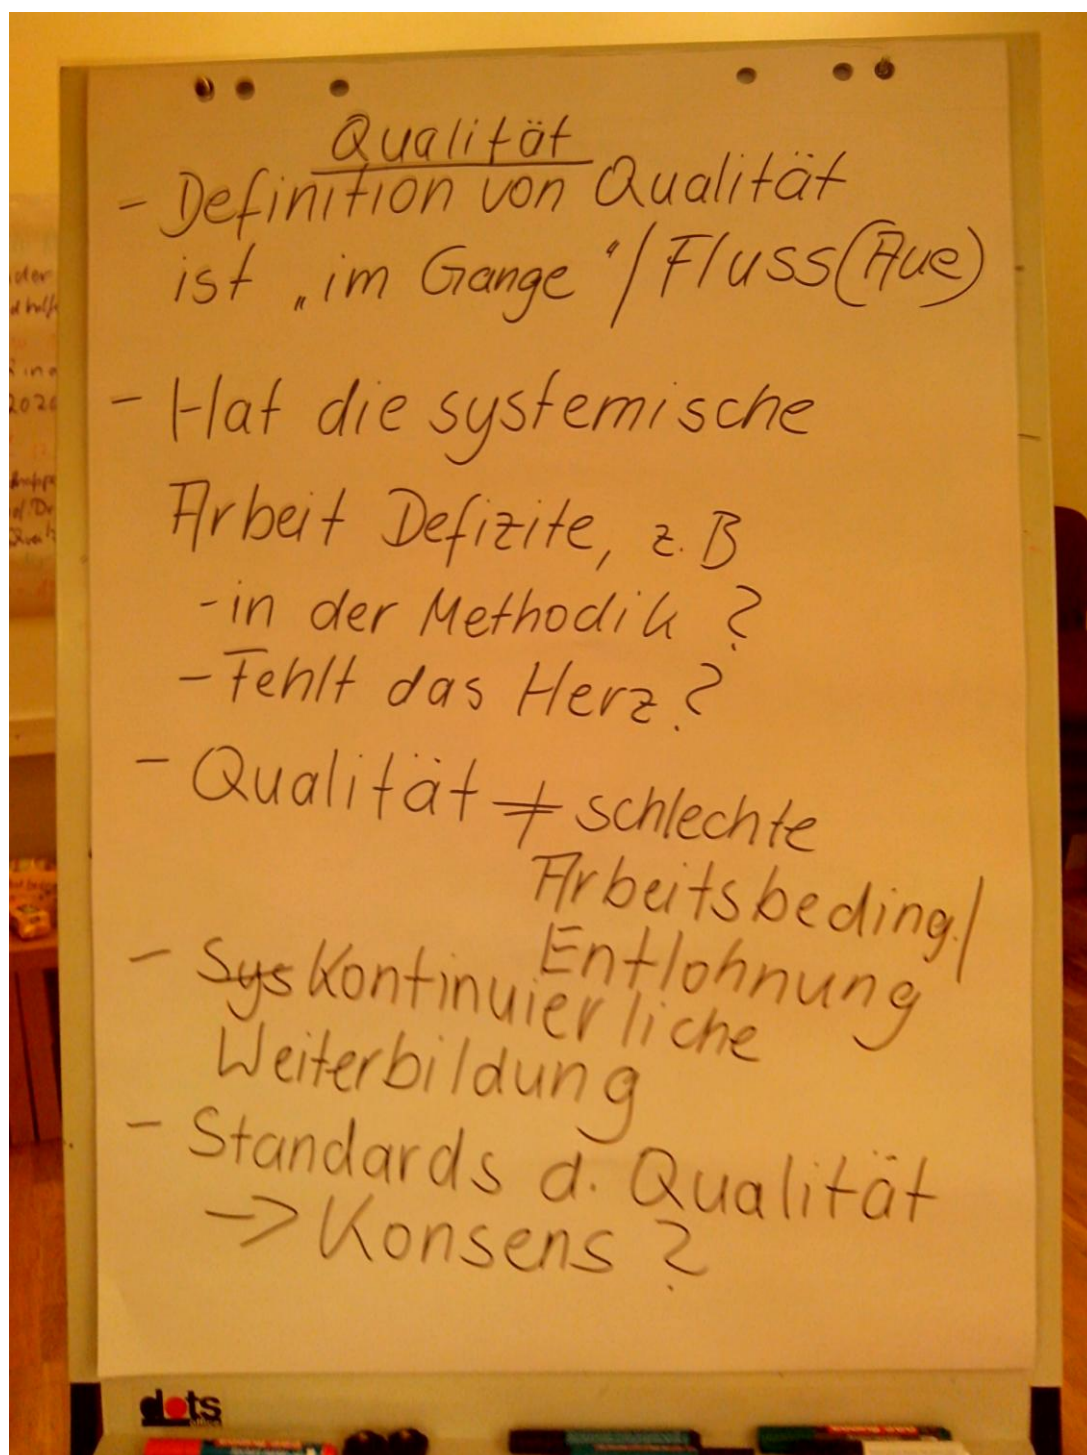 Qualität
- Definition von Qualität
ist „im Gange“ / Fluss (Aue)
- Hat die systemische
Arbeit Defizite, z.B
- in der Methodik ?
- Fehlt das Herz ?
- Qualität ≠ schlechte
Arbeitsbeding./
Entlohnung
- Sys Kontinuierliche
Weiterbildung
- Standards d. Qualität
-> Konsens ?
dots